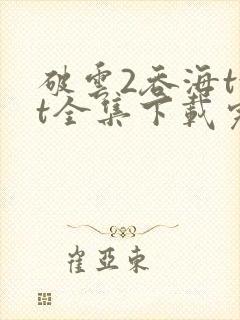 破雲2吞海t
t全集下載
崔亞東